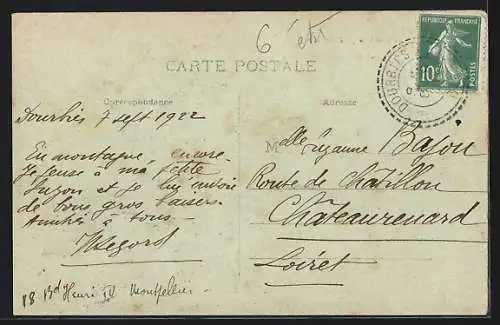 6
CARTE POSTALE
Correspondance
Adresse
REPUBLIQUE FRANÇAISE
10c
POSTES
DOURBIES
Dourbies 7 sept 1922
En montagne, encore.
Je pense à ma petite
Suzon et je lui envoie
de bons gros baisers.
Amitiés à tous
Melle Suzanne Bajou
Route de Châtillon
Châteaurenard
Loiret
18 Bd Henri IV Montpellier